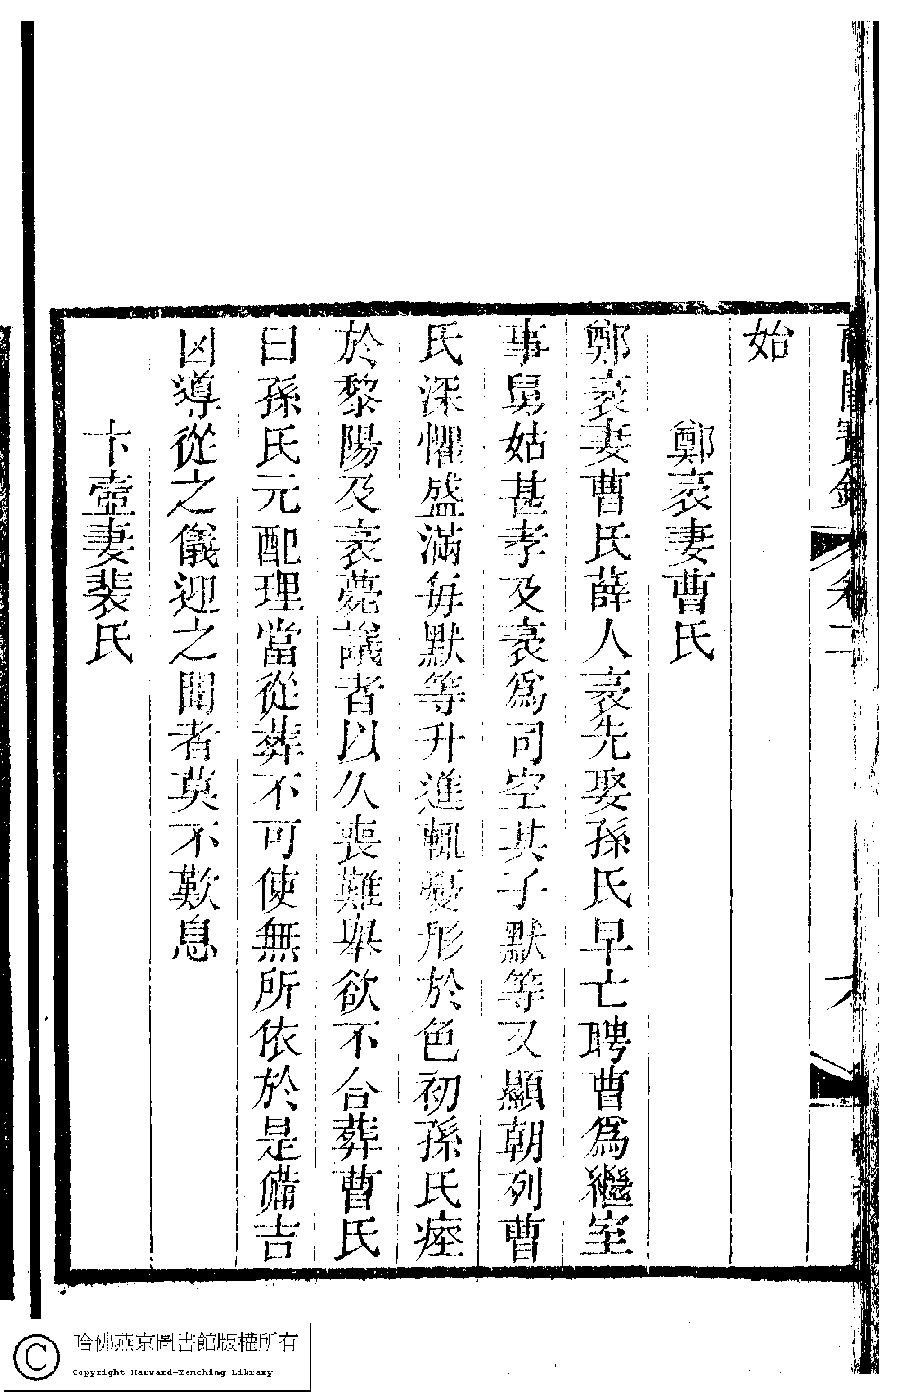 始
鄭袤妻曹氏
鄭袤妻曹氏薛人袤先娶孫氏早亡聘曹爲繼室
事舅姑甚孝及袤爲司空其子默等又顯朝列曹
氏深懼盛滿每默等升進輒憂形於色初孫氏瘞
於黎陽及袤薨議者以久喪難舉欲不合葬曹氏
曰孫氏元配理當從葬不可使無所依於是備吉
凶導從之儀迎之聞者莫不歎息
卞壼妻裴氏
哈佛燕京圖書館版權所有
Copyright Harvard-Yenching Library